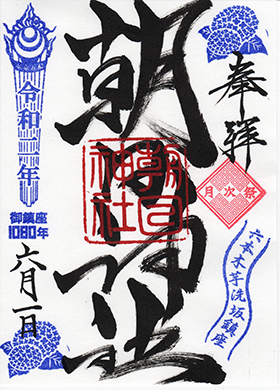 奉拝
月次祭
六本木芋洗坂鎮座
朝日神社
朝日神社
令和二年
御鎮座
1080年
六月一日